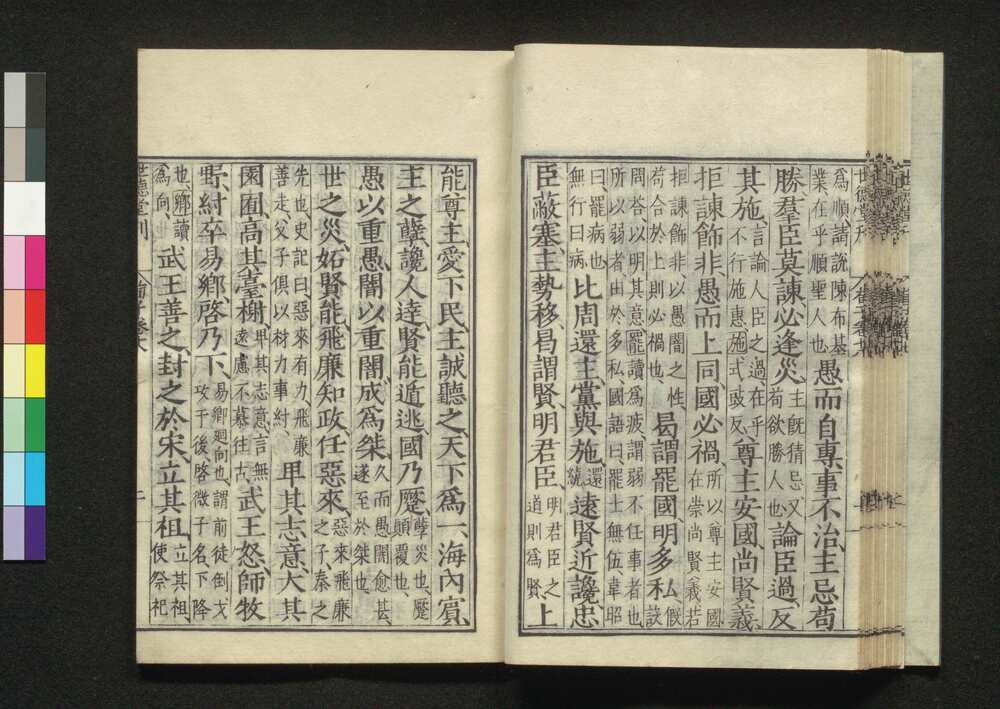 為順請說陳布基
業在乎順聖人也
愚而自專事不治主忌苟
勝羣臣莫諫必逢災
主既猜忌又
苟欲勝人也
論臣過反
其施
言論人臣之過在乎
不行施惠施式豉反
尊主安國尚賢義
拒諫飾非愚而上同國必禍
所以尊主安國
在崇尚賢義若
拒諫飾非以愚闇之性
苟合於上則必禍也
曷謂罷國明多私
假
設
問荅以明其意罷讀為疲謂弱不任事者也
所以弱者由於多私國語曰罷士無伍韋昭
曰罷病也
無行曰病
比周還主黨與施
還
繞
遠賢近讒忠
臣蔽塞主勢移曷謂賢明君臣
明君臣之
道則為賢
上
能尊主愛下民主誠聽之天下為一海內賓
主之孽讒人達賢能遁逃國乃蹷
孽災也蹷
顛覆也
愚以重愚闇以重闇成為桀
久而愚闇愈甚
遂至於桀也
世之災妬賢能飛廉知政任惡來
惡來飛廉
之子秦之
先也史記曰惡來有力飛廉
善走父子俱以材力事紂
卑其志意大其
園囿高其臺榭
卑其志意言無
遠慮不慕往古
武王怒師牧
野紂卒易鄉啓乃下
易鄉廻向也謂前徒倒戈
攻于後啓微子名下降
也鄉讀
為向
武王善之封之於宋立其祖
立其祖
使祭祀
世德堂刊